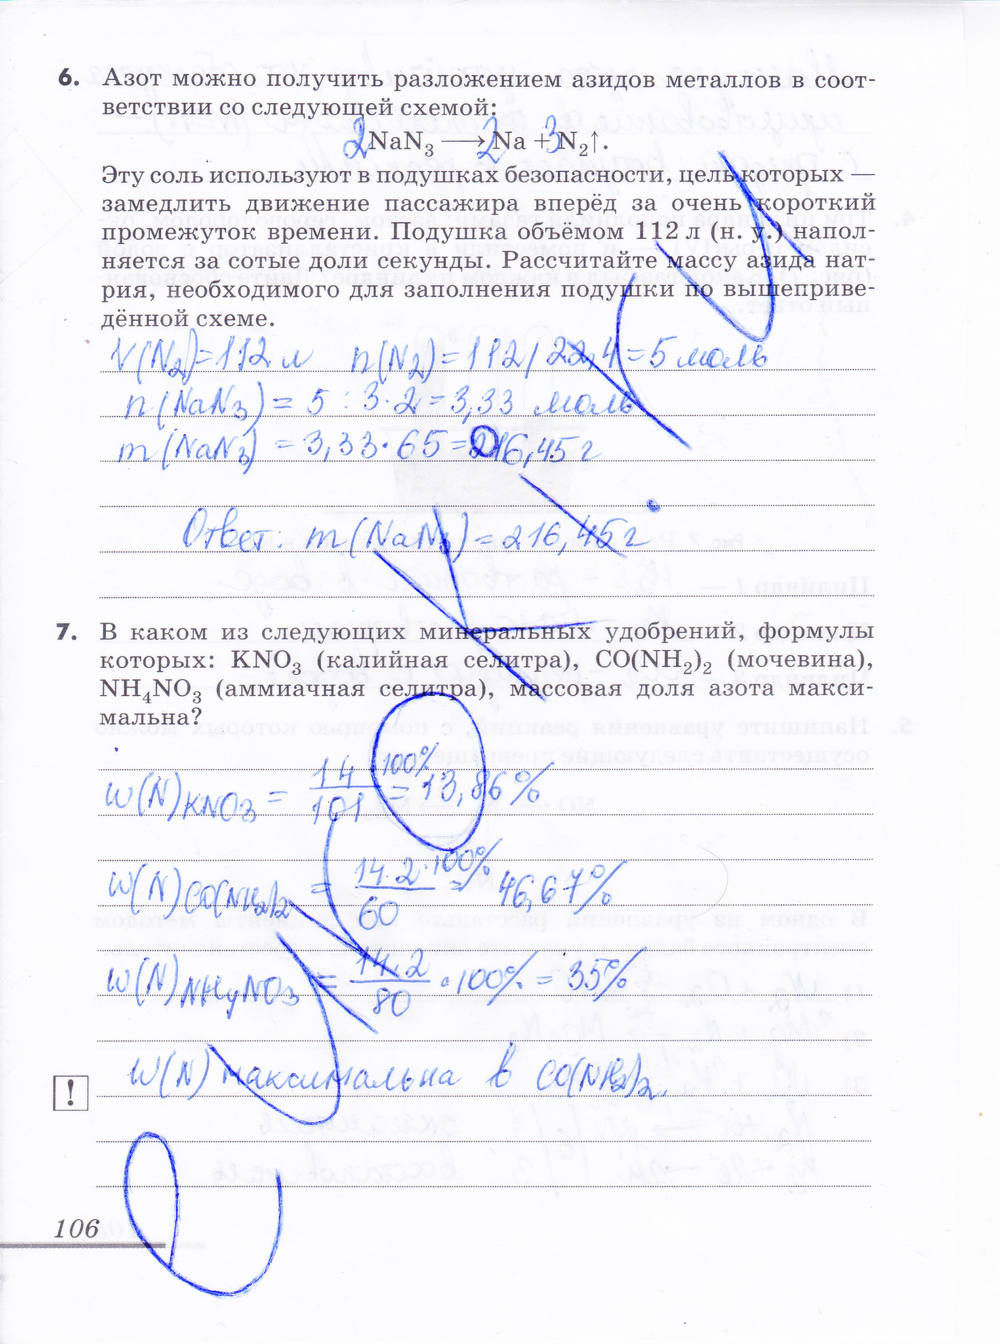 6. Азот можно получить разложением азидов металлов в соот-
ветствии со следующей схемой:
2NaN₃ ⟶ 2Na + 3N₂↑.
Эту соль используют в подушках безопасности, цель которых —
замедлить движение пассажира вперёд за очень короткий
промежуток времени. Подушка объёмом 112 л (н. у.) напол-
няется за сотые доли секунды. Рассчитайте массу азида нат-
рия, необходимого для заполнения подушки по вышеприве-
дённой схеме.
V(N₂)=112 л n(N₂)=112/22,4=5 моль
n(NaN₃) = 5 : 3·2=3,33 моль
m(NaN₃) = 3,33·65=216,45 г
Ответ: m(NaN₃)=216,45 г
7. В каком из следующих минеральных удобрений, формулы
которых: KNO₃ (калийная селитра), CO(NH₂)₂ (мочевина),
NH₄NO₃ (аммиачная селитра), массовая доля азота макси-
мальна?
w(N)KNO₃ = 14·100%/101 = 13,86%
w(N)CO(NH₂)₂ = 14·2·100%/60 = 46,67%
w(N)NH₄NO₃ = 14·2/80 · 100% = 35%
! w(N) максимальна в CO(NH₂)₂.
106